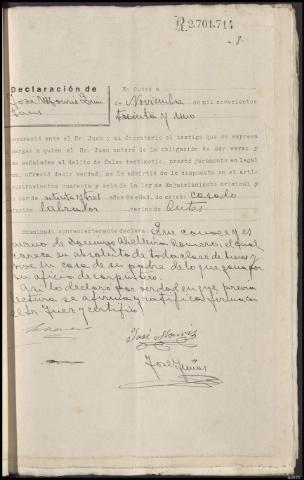 R.2.701.714
8
Declaración de
José
En Cutes a
de Noviembre de mil novecientos
treinta y uno
compareció ante el Sr. Juez y mi Secretario el testigo que se expresa
margen a quien el Sr. Juez enteró de la obligación de ser veraz y
señaladas al delito de falso testimonio, prestó juramento en legal
ofreció decir verdad, se le advirtió de lo dispuesto en el arti-
cuatrocientos cuarenta y seis de la Ley de Enjuiciamiento criminal y
ser de años de edad, de estado casado
labrador vecino de Cutes
Examinado convenientemente declara: Que conoce y es
de Domingo Romero, el cual
carece en absoluto de toda clase de bienes y
vive en casa de su padre de lo que gana por
su oficio de carpintero.
Así lo declaró por verdad en que previa
lectura se afirma y ratifica firma con
el Sr. Juez y certifico
José
José